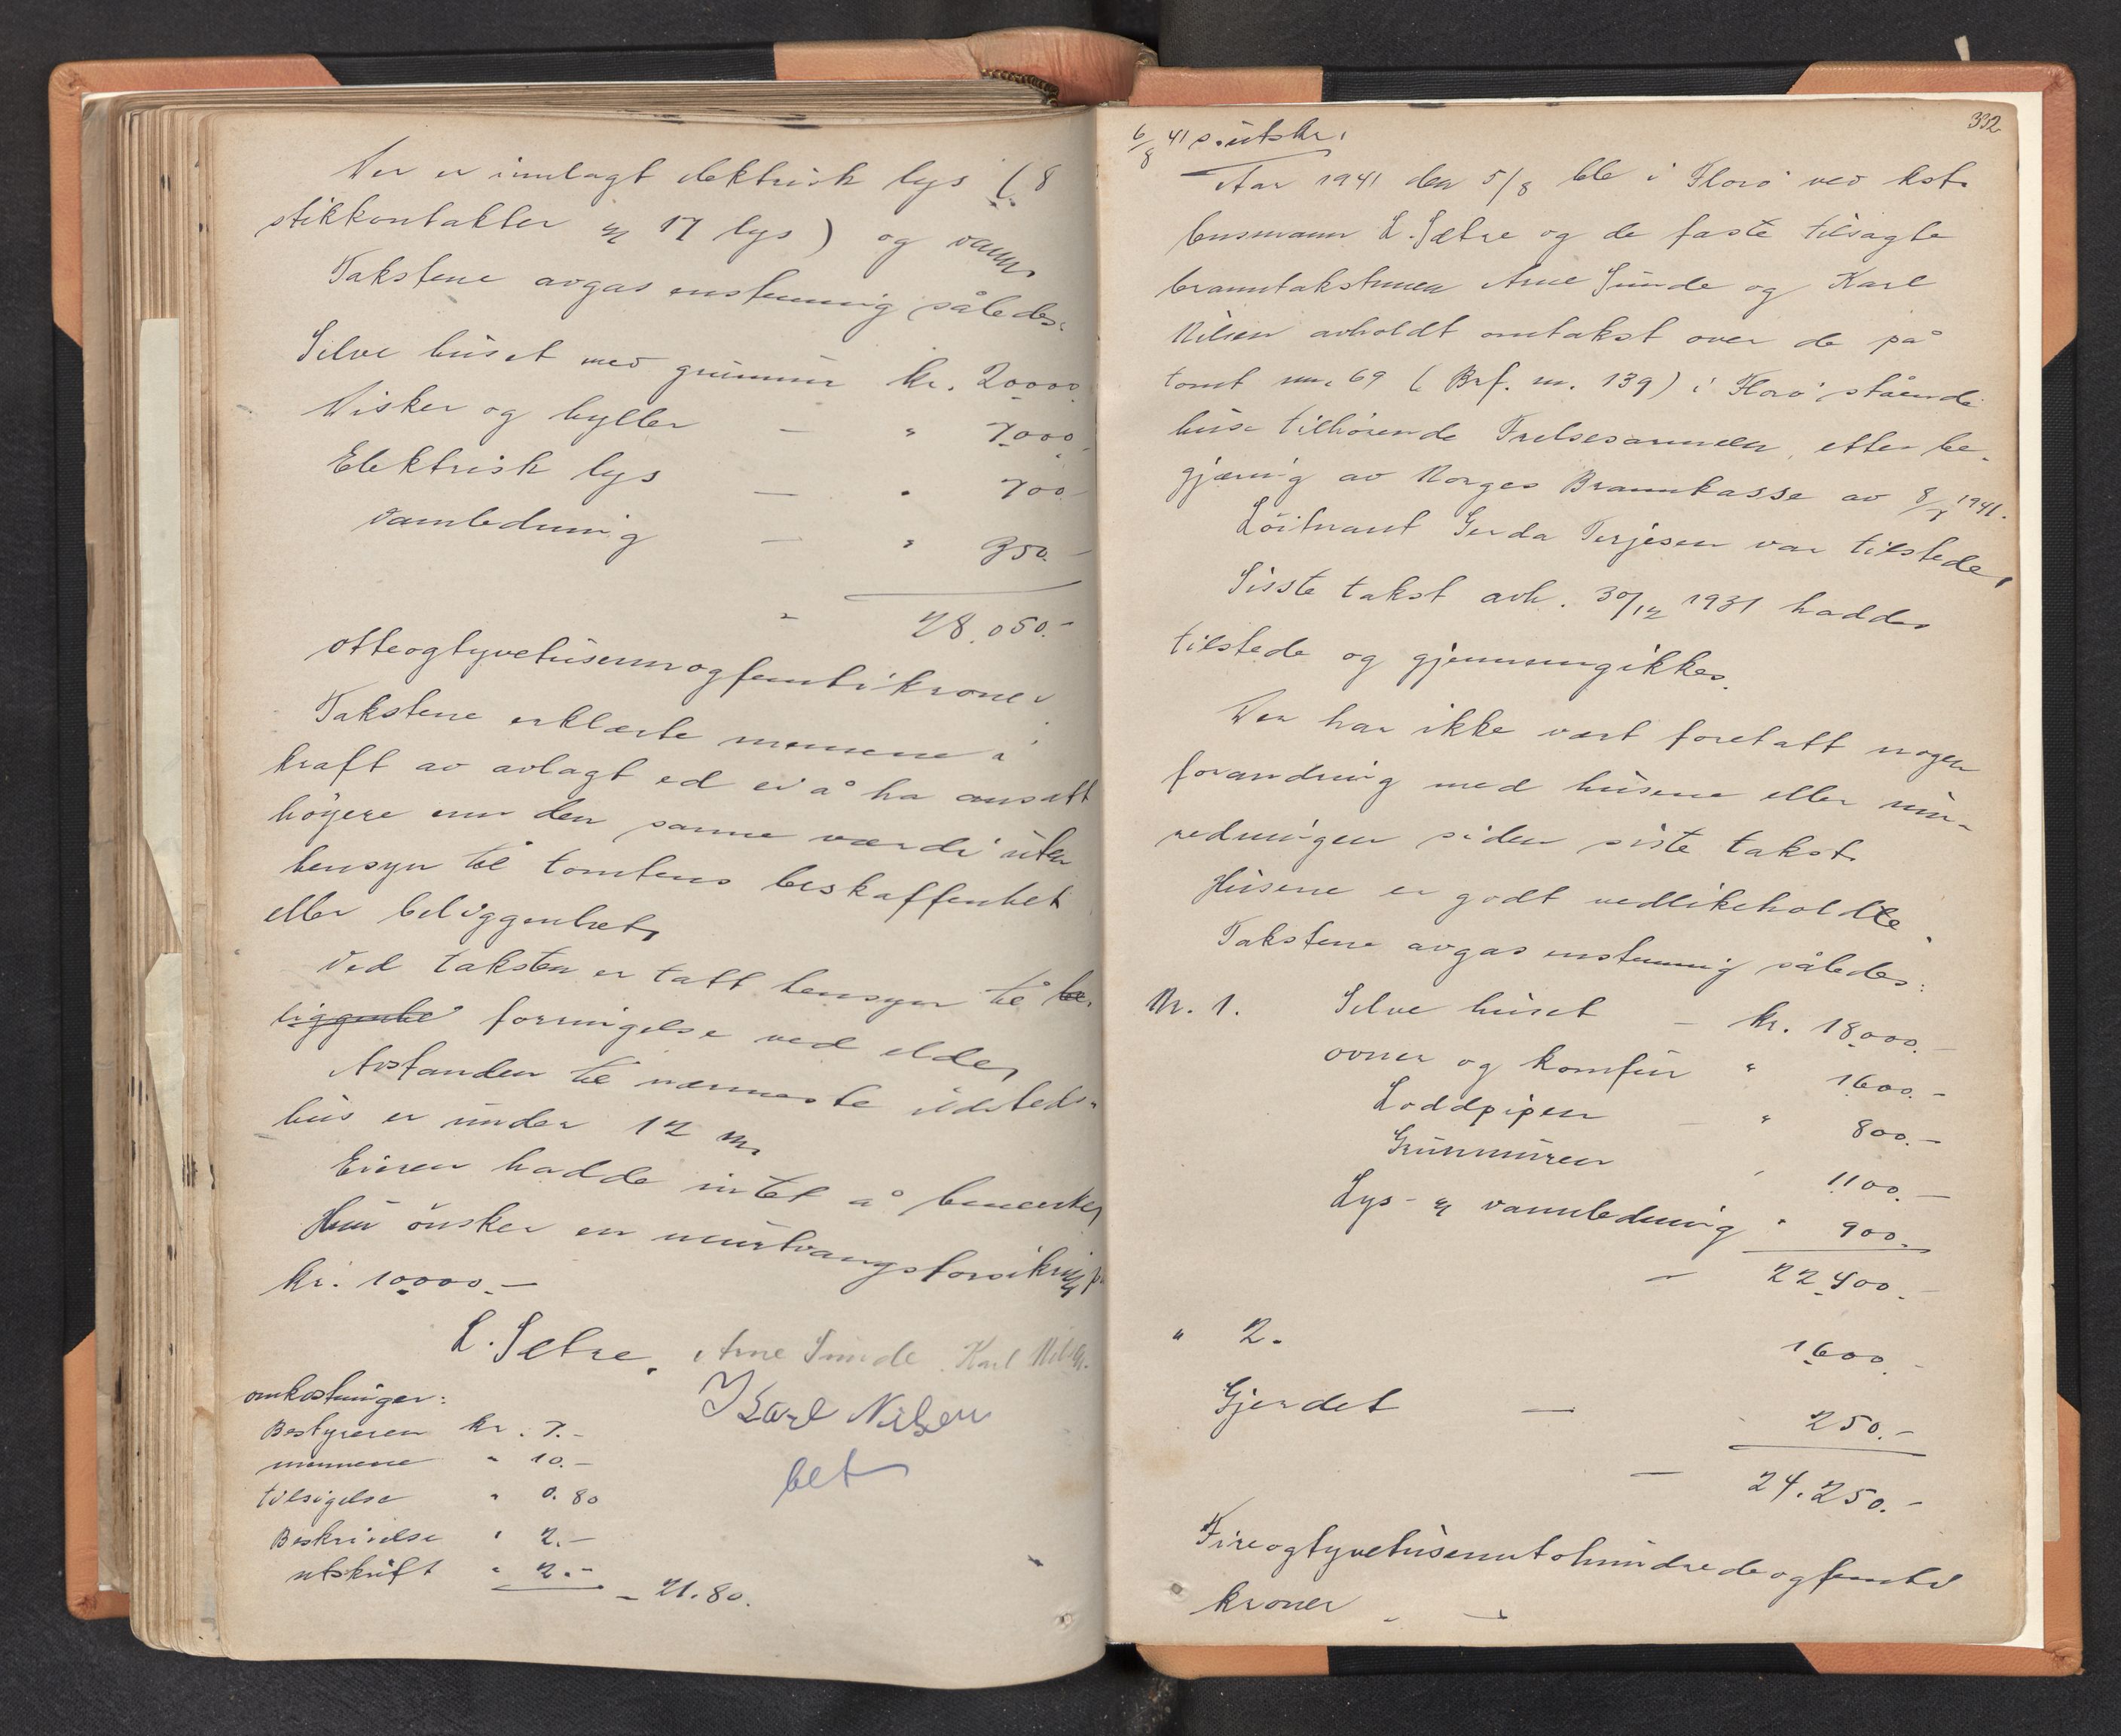 Der er innlagt elektrisk lys (8
stikkontakter og 17 lys) og vann.
Takstene avgas enstemmig således:
Selve huset med grunnmur kr. 20000.
Disker og hyller — " 7000.
Elektrisk lys — " 700.
Vannledning — " 350.-
" 28.050.-
otteogtyvetusenogfemtikroner.
Takstene erklærte mennene i
kraft av avlagt ed ei å ha ansatt
höyere enn den sanne værdi uten
hensyn til tomtens beskaffenhet
eller beliggenhet.
Ved taksten er tatt hensyn til be-
liggenhe forringelse ved elde.
Avstanden til nærmeste ildsteds-
hus er under 12 m.
Eieren hadde intet å bemerke.
Hun önsker en murtvangsforsikring på
kr. 10000.—
L. Sætre. Arne Sunde. Karl Nilsen.
Karl Nilsen
bet
omkostninger:
Bestyreren kr. 7.-
mennene " 10.-
tilsigelse " 0.80
Beskrivelse " 2.-
utskrift " 2.-
- 21.80.
332
6/8 41 s. utskr.
Aar 1941 den 5/8 ble i Florö ved kst.
lensmann L. Sætre og de faste tilsagte
branntakstmenn Arne Sunde og Karl
Nilsen avholdt omtakst over de på
tomt nr. 69 (Brf. nr. 139) i Florö stående
huse tilhörende Frelsesarmeen, etter be-
gjæring av Norges Brannkasse av 8/7 1941.
Löitnant Gerda Terjesen var tilstede.
Sisste takst avh. 30/12 1931 haddes
tilstede og gjennemgikkes.
Der har ikke vært foretatt nogen
forandring med husene eller inn-
redningen siden siste takst.
Husene er godt vedlikeholdte.
Takstene avgas enstemmig således:
Nr. 1. Selve huset - kr. 18000.-
ovner og komfur " 1600.-
Loddpipen - " 800.-
Grunnmuren " 1100.-
Lys- og vannledning " 900.-
— 22400.-
" 2. 1600.-
Gjerdet — 250.-
— 24.250.-
Fireogtyvetusenntohundredeogfemti
kroner. —